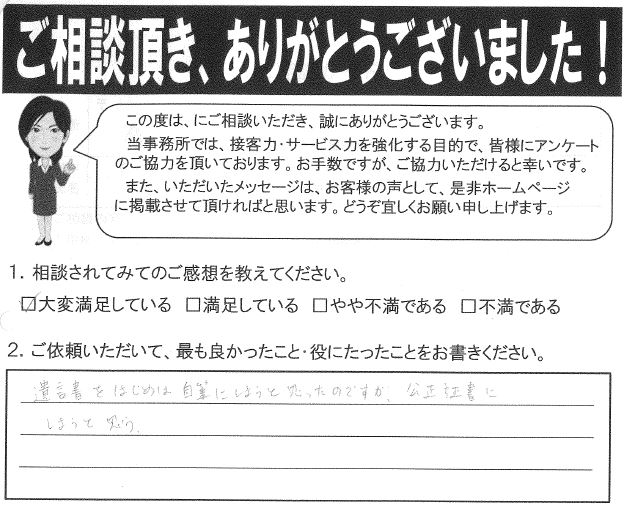 ご相談頂き、ありがとうございました!
この度は、にご相談いただき、誠にありがとうございます。
当事務所では、接客力・サービス力を強化する目的で、皆様にアンケート
のご協力を頂いております。お手数ですが、ご協力いただけると幸いです。
また、いただいたメッセージは、お客様の声として、是非ホームページ
に掲載させて頂ければと思います。どうぞ宜しくお願い申し上げます。
1. 相談されてみてのご感想を教えてください。
☑大変満足している □満足している □やや不満である □不満である
2. ご依頼いただいて、最も良かったこと・役にたったことをお書きください。
遺言書をはじめは自筆にしようと思ったのですが、公正証書に
しようと思う。